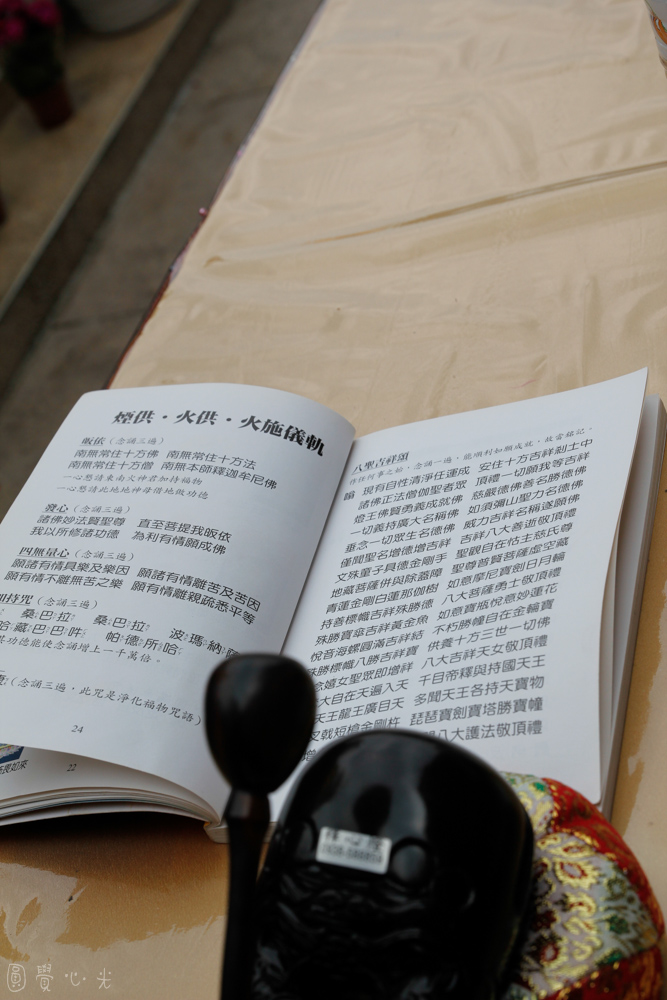 煙供・火供・火施儀軌
皈依(念誦三遍)
南無常住十方佛 南無常住十方法
南無常住十方僧 南無本師釋迦牟尼佛
一心懇請東南火神君加持福物
一心懇請此地地神母借地做功德
發心(念誦三遍)
諸佛妙法賢聖尊 直至菩提我皈依
我以所修諸功德 為利有情願成佛
四無量心(念誦三遍)
願諸有情具樂及樂因 願諸有情離苦及苦因
願有情不離無苦之樂 願有情離親疏悉平等
加持咒(念誦三遍)
桑巴拉 桑巴拉 波瑪納
哈藏巴巴吽 帕德所哈
其功德能使念誦增上一千萬倍。
(念誦三遍,此咒是淨化福物咒語)
24
22
八聖吉祥頌
作任何事之始,念誦一遍,能順利如願成就,故當銘記。
嗡 現有自性清淨任運成 安住十方吉祥剎土中
諸佛正法僧伽聖者眾 頂禮一切願我等吉祥
燈王佛賢勇義成就佛 慈嚴德佛善名勝德佛
一切義持廣大名稱佛 如須彌山聖力名德佛
垂念一切眾生名德佛 威力吉祥名稱遂願佛
僅聞聖名增德增吉祥 吉祥八大善逝敬頂禮
文殊童子具德金剛手 聖觀自在怙主慈氏尊
地藏菩薩併與除蓋障 聖尊普賢菩薩虛空藏
青蓮金剛白蓮那伽樹 如意摩尼寶劍日月輪
持善標幟吉祥殊勝德 八大菩薩勇士敬頂禮
殊勝寶傘吉祥黃金魚 如意寶瓶悅意妙蓮花
悅音海螺圓滿吉祥結 不朽勝幢自在金輪寶
殊勝標幟八勝吉祥寶 供養十方三世一切佛
念嬉女聖眾即增祥 八大吉祥天女敬頂禮
大自在天遍入天 千目帝釋與持國天王
天王龍王廣目天 多聞天王各持天寶物
叉戟短槍金剛杵 琵琶寶劍寶塔勝寶幢
八大護法敬頂禮
圓覺心光